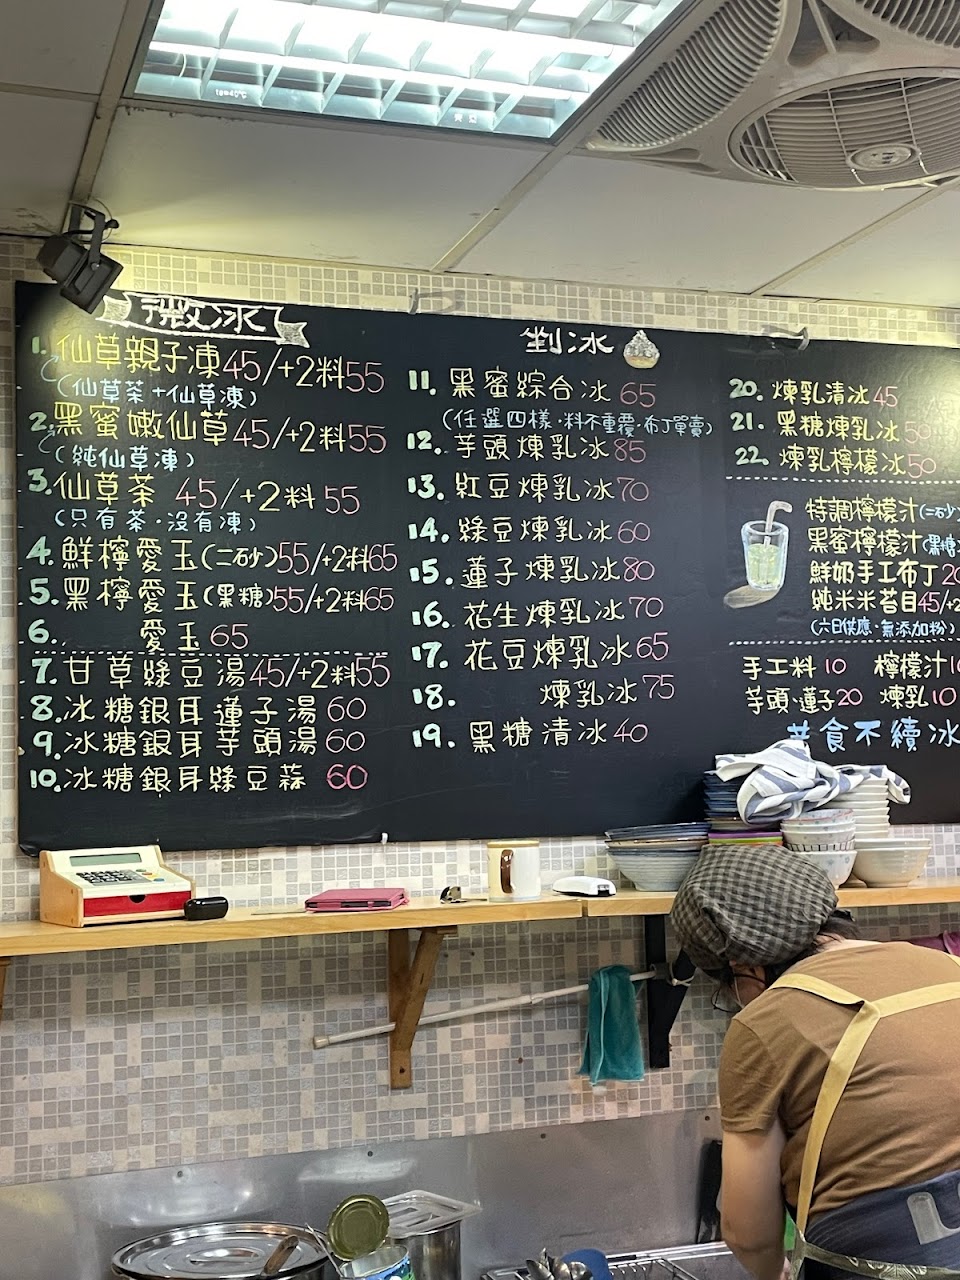 微冰
1. 仙草親子凍45/+2料55
(仙草茶+仙草凍)
2. 黑蜜嫩仙草45/+2料55
(純仙草凍)
3. 仙草茶 45/+2料 55
(只有茶·沒有凍)
4. 鮮檸愛玉(二砂)55/+2料65
5. 黑檸愛玉(黑糖)55/+2料65
6. 愛玉 65
7. 甘草綠豆湯45/+2料55
8. 冰糖銀耳蓮子湯 60
9. 冰糖銀耳芋頭湯 60
10. 冰糖銀耳綠豆蒜 60
剉冰
11. 黑蜜綜合冰 65
(任選四樣·料不重覆·布丁單賣)
12. 芋頭煉乳冰85
13. 紅豆煉乳冰70
14. 綠豆煉乳冰 60
15. 蓮子煉乳冰80
16. 花生煉乳冰 70
17. 花豆煉乳冰65
18. 煉乳冰75
19. 黑糖清冰40
20. 煉乳清冰45
21. 黑糖煉乳冰50
22. 煉乳檸檬冰50
特調檸檬汁(二砂)
黑蜜檸檬汁(黑糖
鮮奶手工布丁20
純米米苔目45/+2
(六日供應·無添加粉)
手工料 10 檸檬汁10
芋頭·蓮子20 煉乳10
共食不續冰